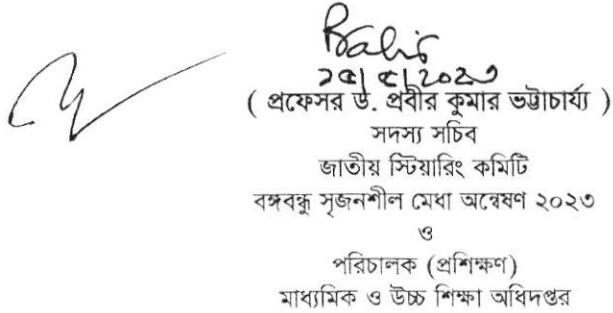 ( প্রফেসর ড. প্রবীর কুমার ভট্টাচার্য্য )
সদস্য সচিব
জাতীয় স্টিয়ারিং কমিটি
বঙ্গবন্ধু সৃজনশীল মেধা অন্বেষণ ২০২৩
ও
পরিচালক (প্রশিক্ষণ)
মাধ্যমিক ও উচ্চ শিক্ষা অধিদপ্তর